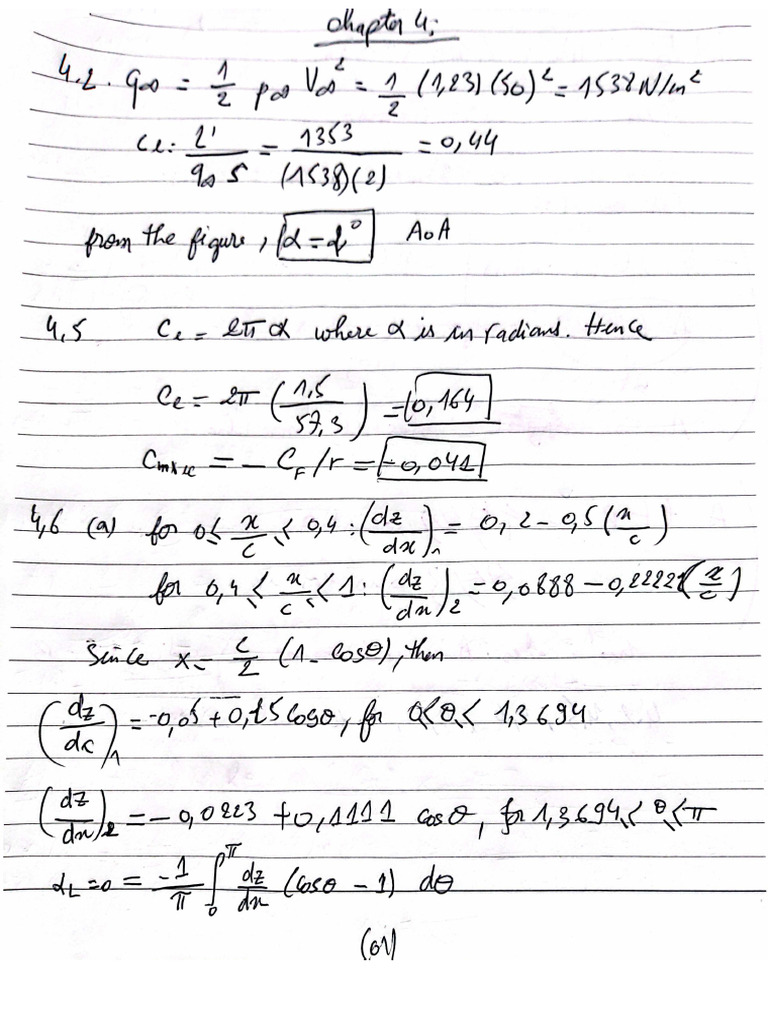 Chapter 4:
4.2. q∞ = 1/2 ρ∞ V∞² = 1/2 (1,23)(50)² = 1538 N/m²
Cl: L'/(q∞ S) = 1353/((1538)(2)) = 0,44
from the figure, α = 2° AoA
4,5 Cl = 2π α where α is in radians. Hence
Cl = 2π (1,5/57,3) = 0,164
= - /r = -0,041
4,6 (a) for 0 ≤ x/c ≤ 0,4 : (dz/dx)1 = 0,2 - 0,5 (x/c)
for 0,4 ≤ x/c ≤ 1 : (dz/dx)2 = 0,0888 - 0,2222 (x/c)
Since x = c/2 (1 - cosθ), then
(dz/dx)1 = -0,05 + 0,25 cosθ, for 0 ≤ θ ≤ 1,3694
(dz/dx)2 = -0,0223 + 0,1111 cosθ, for 1,3694 ≤ θ ≤ π
αL=0 = -1/π ∫0^π dz/dx (cosθ - 1) dθ
(01)